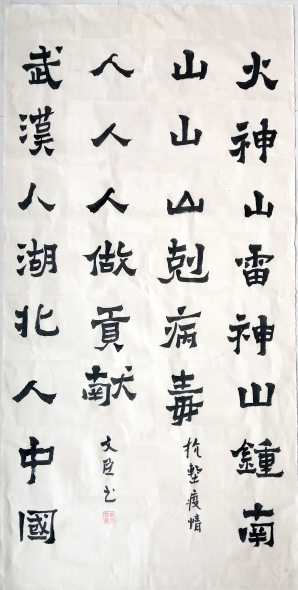 火神山雷神山鍾南
山山山剋病毒
抗擊疫情
武漢人湖北人中國
人人人做貢獻
文臣书